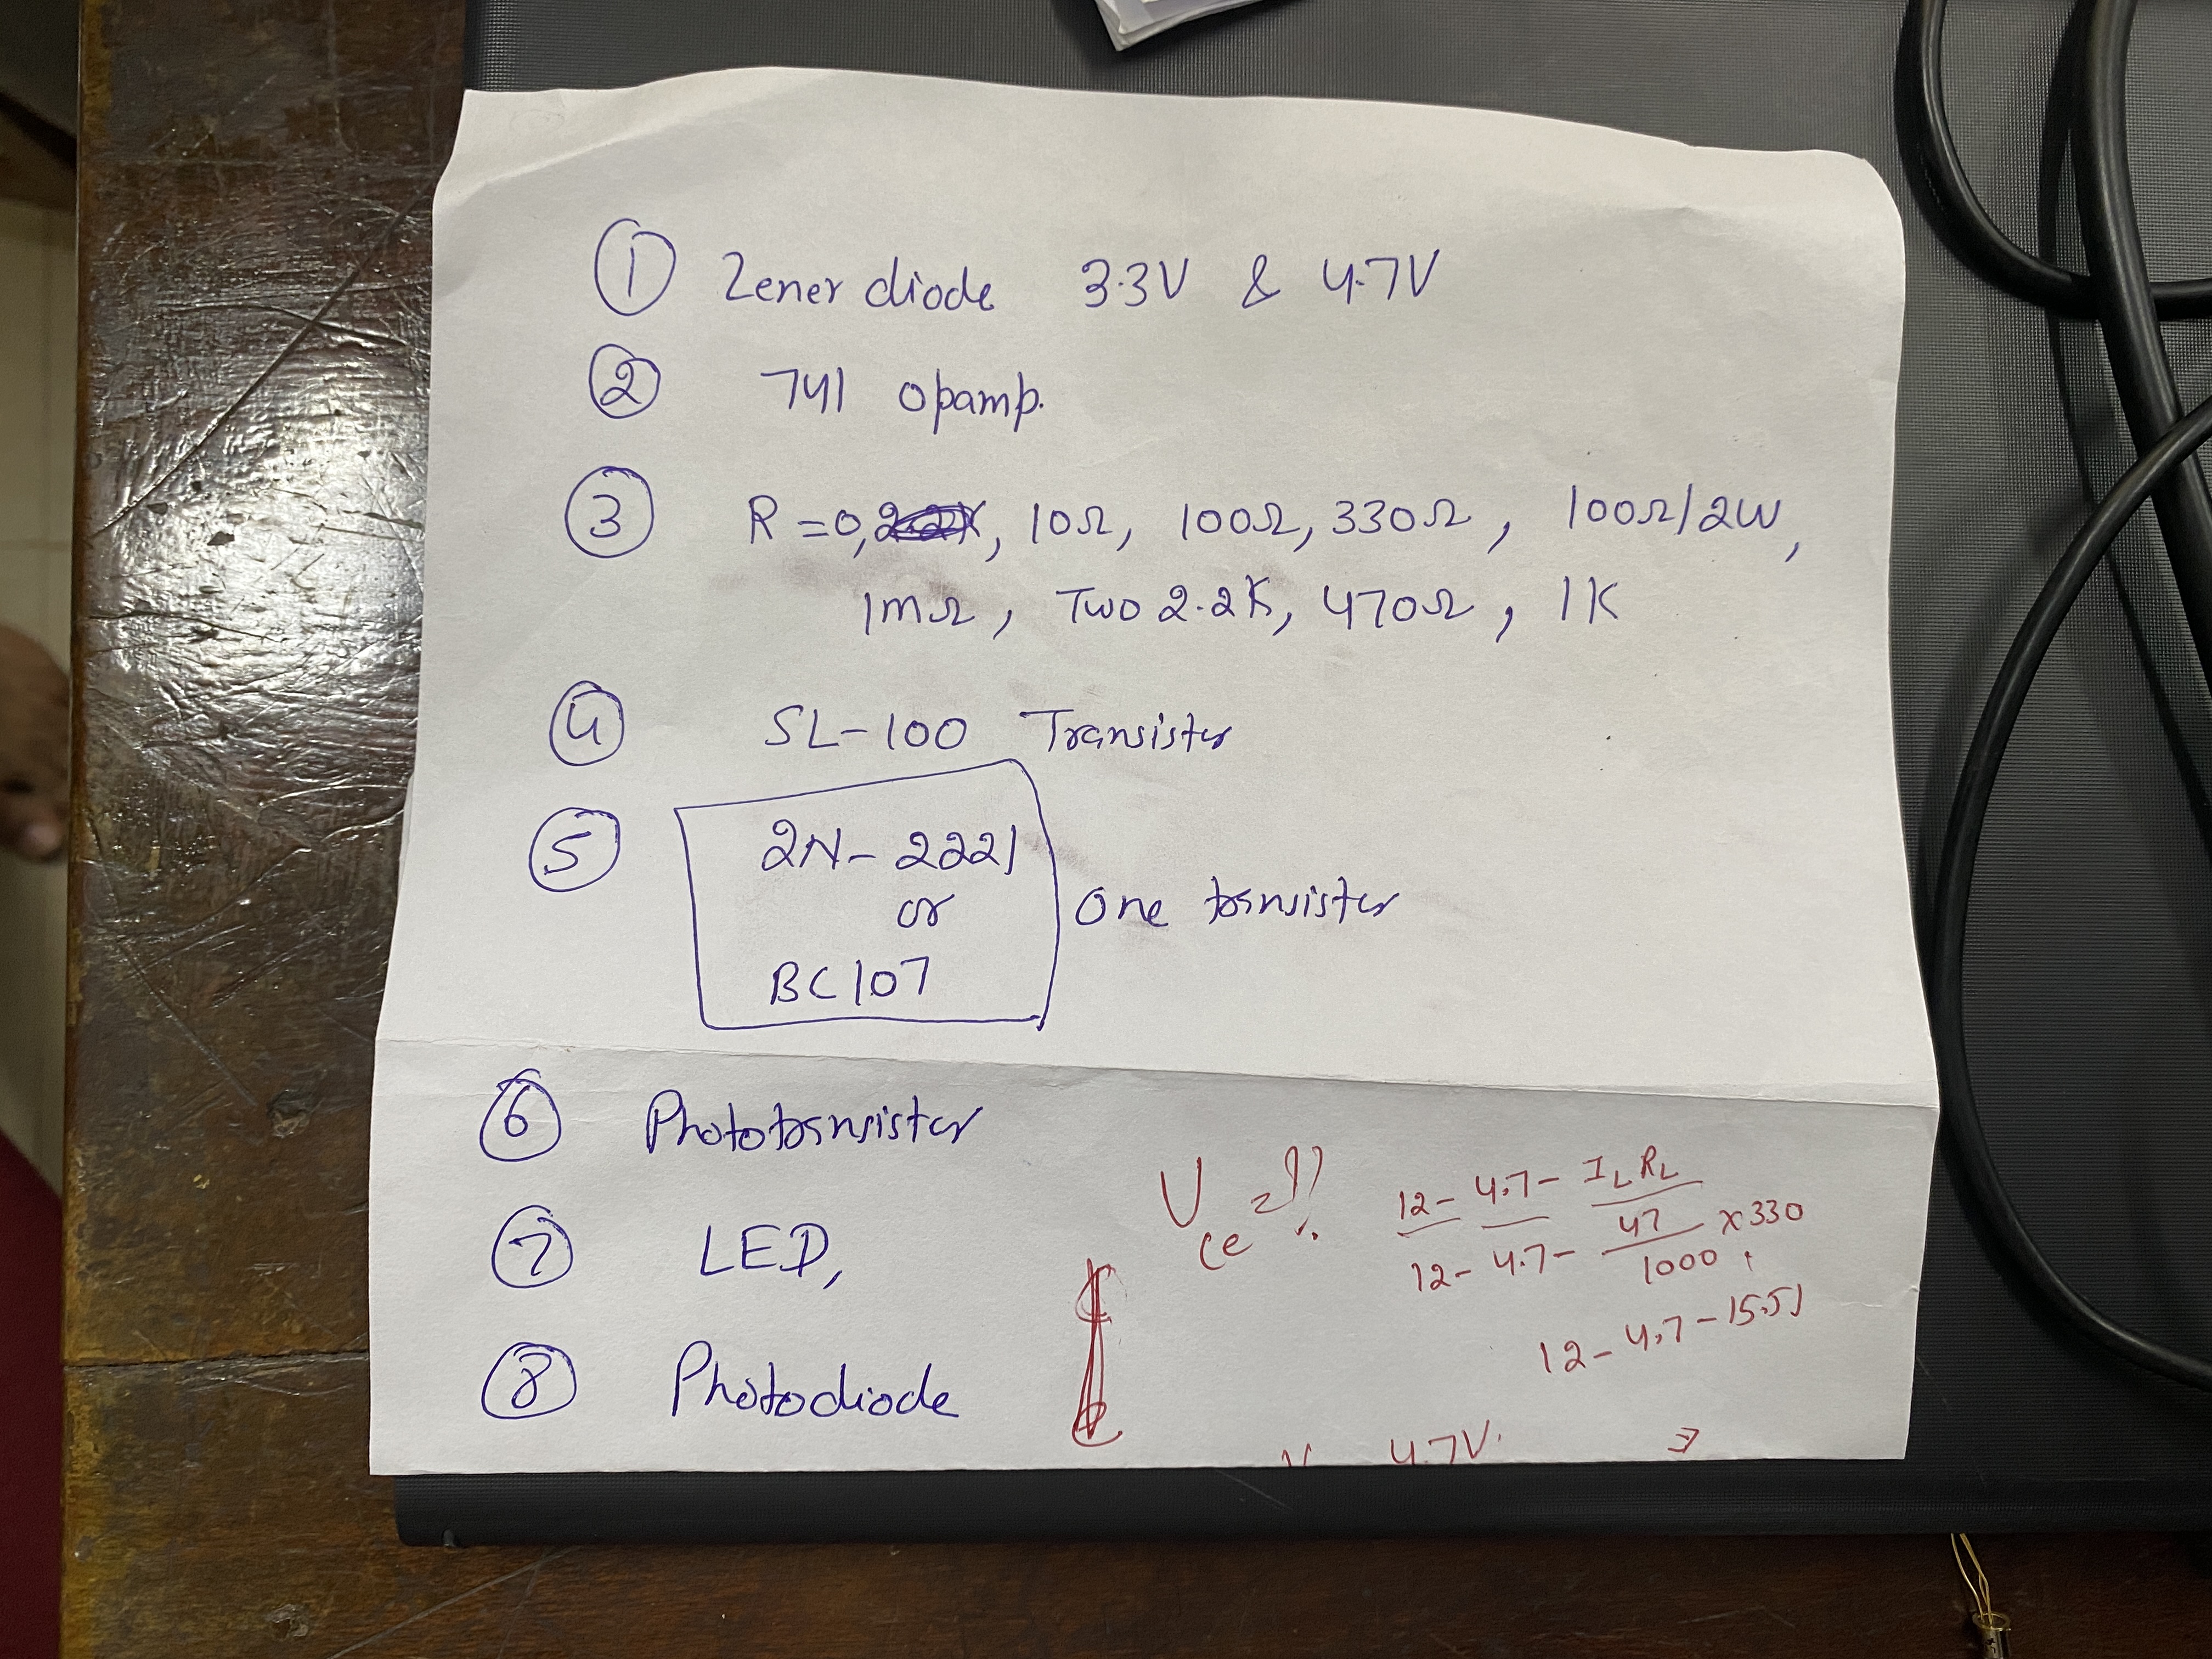 ① Zener diode 3.3V & 4.7V
② 741 opamp.
③ R = 0, 10Ω, 100Ω, 330Ω, 100Ω/2W,
1mΩ, Two 2.2K, 470Ω, 1K
④ SL-100 Transistor
⑤ 2N-2221
or
BC107
One transistor
⑥ Phototransistor
⑦ LED,
⑧ Photodiode
Vce
12 - 4.7 - IL RL
12 - 4.7 - 47/1000 x 330
12 - 4.7 - 15.51
4.7V.